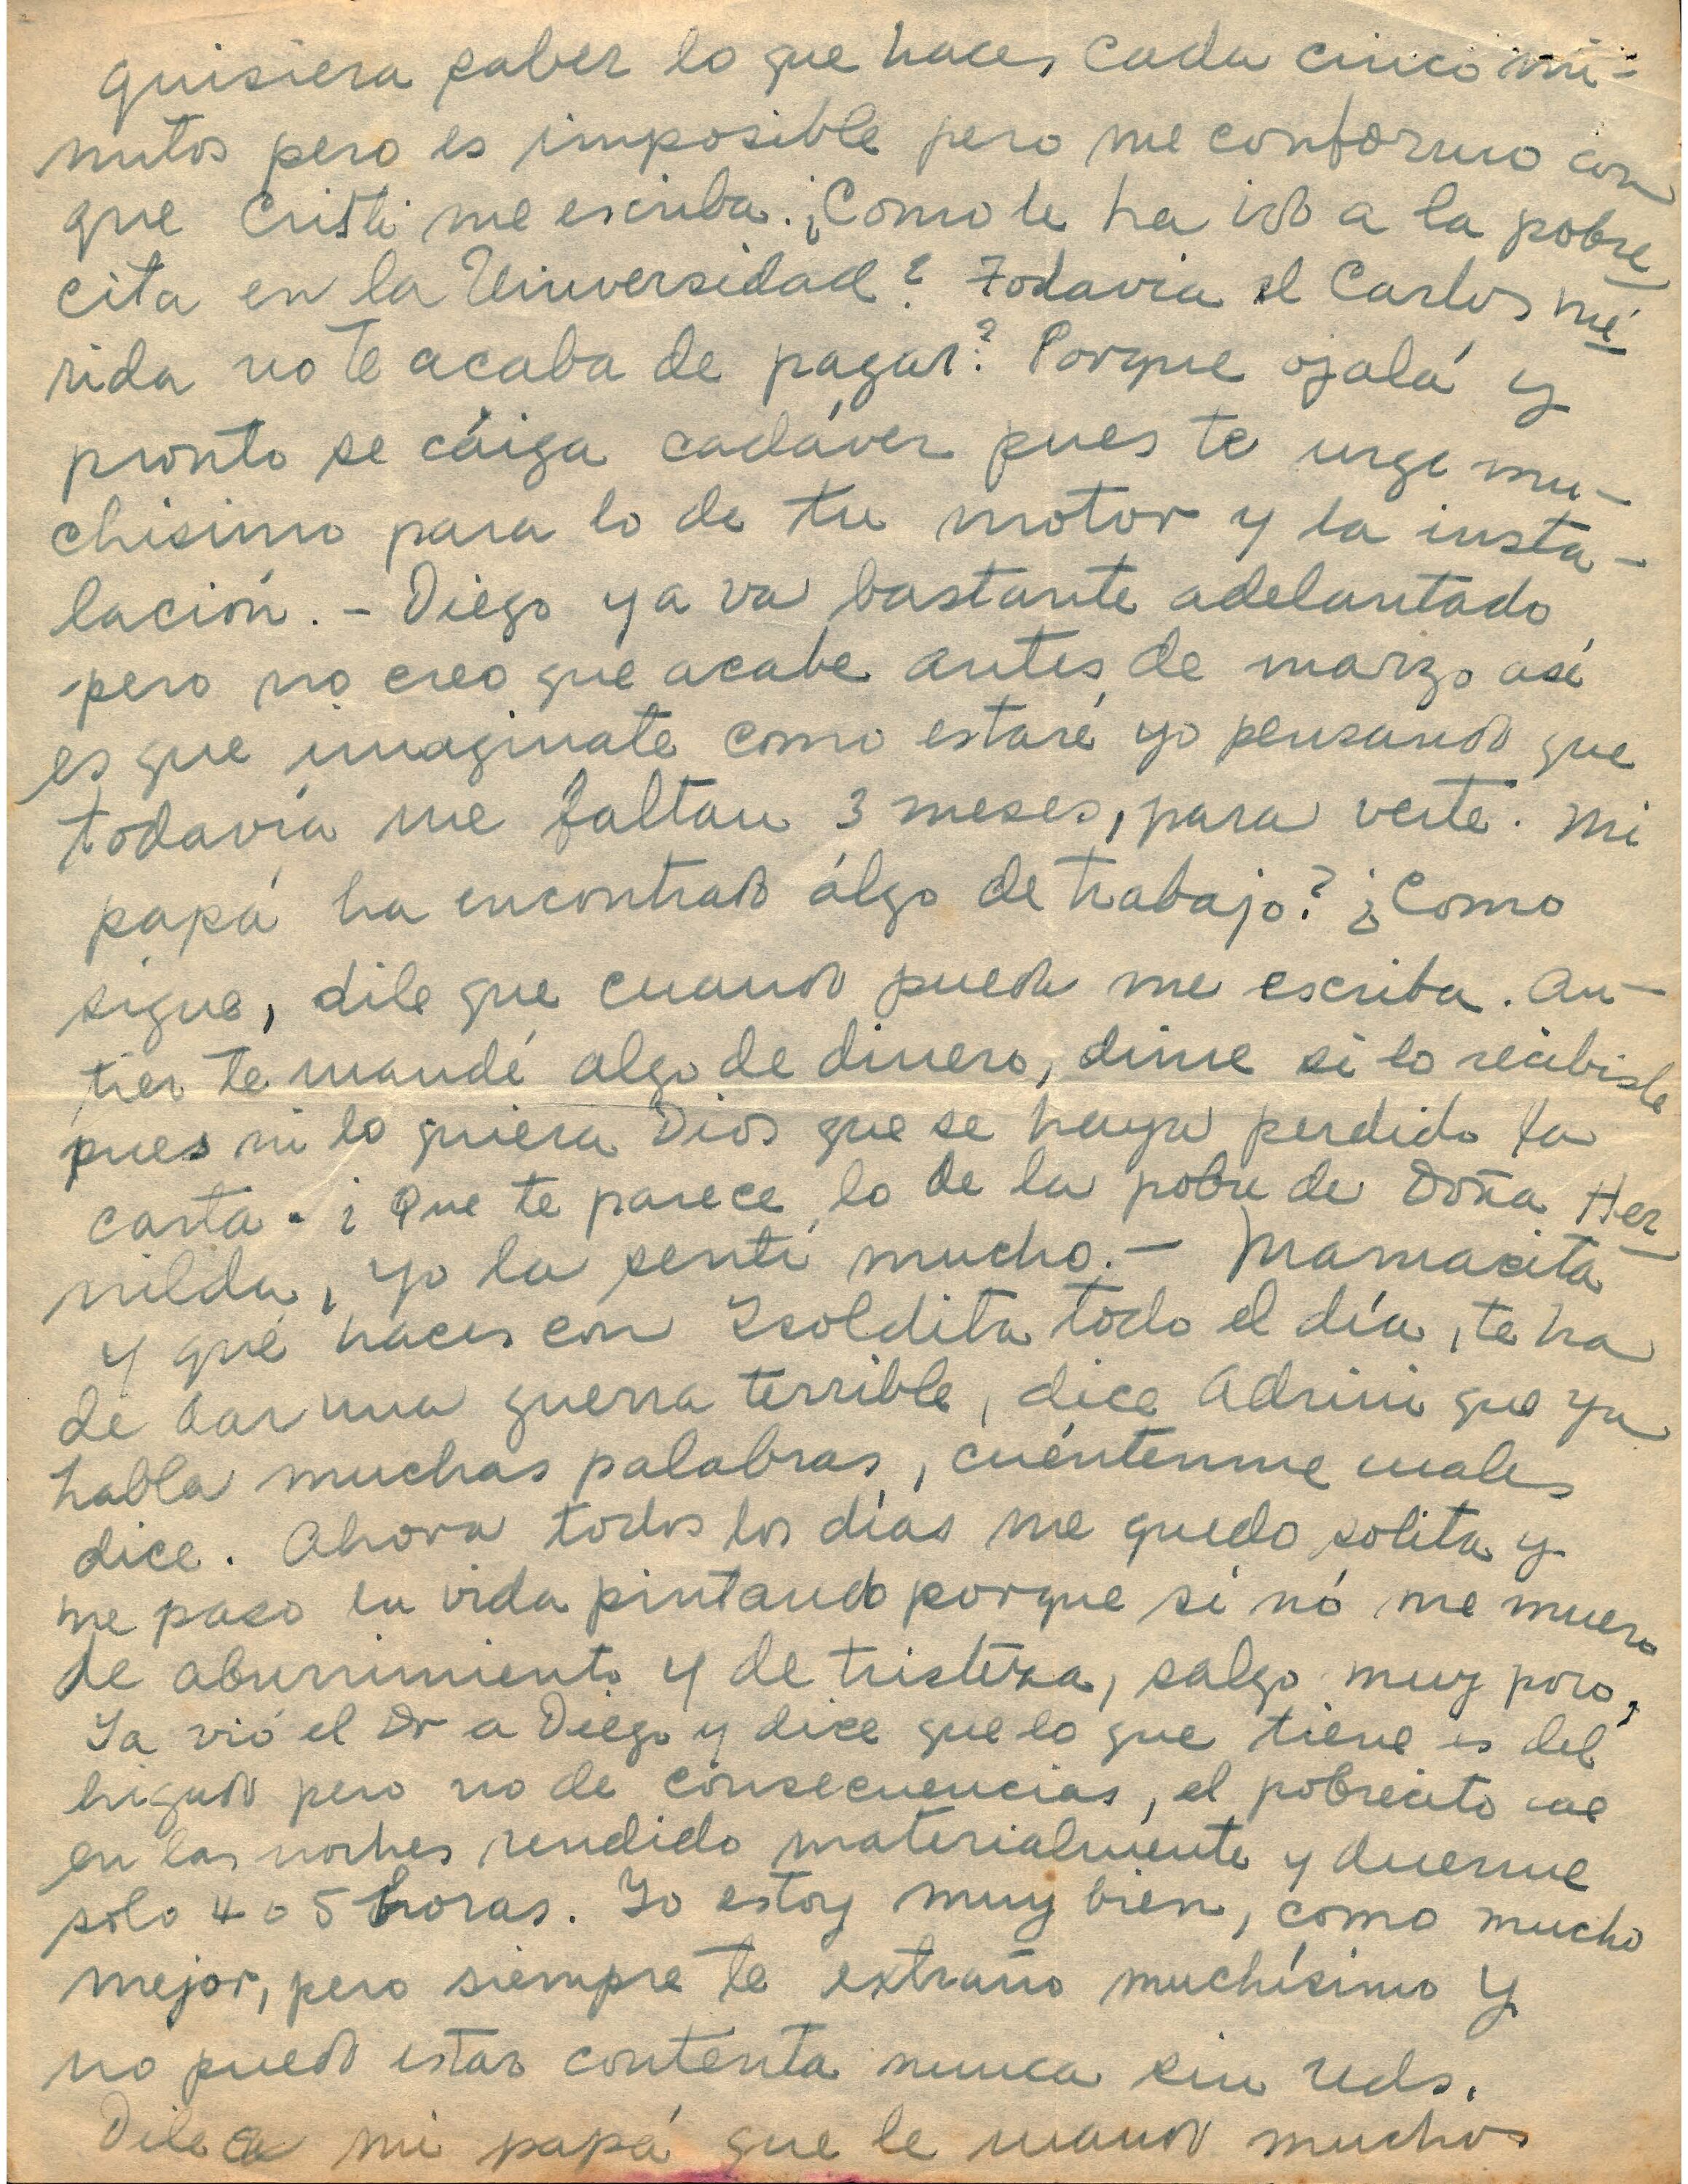 quisiera saber lo que haces cada cinco mi-
nutos pero es imposible pero me conformo con
que Cristi me escriba. ¿Como le ha ido a la pobre
cita en la Universidad? Todavia el Carlos Mé
rida no te acaba de pagar? Porque ojalá y
pronto se cáiga cadáver pues te urge mu-
chisimo para lo de tu motor y la insta-
lación. - Diego ya va bastante adelantado
pero no creo que acabe antes de marzo asi
es que imaginate como estaré yo pensando que
todavía me faltan 3 meses, para verte. Mi
papá ha encontrado álgo de trabajo? ¿Como
sigue, dile que cuando pueda me escriba. An-
tier te mandé algo de dinero, dime si lo recibiste
pues ni lo quiera Dios que se haya perdido la
carta. ¿Que te parece lo de la pobre de Doña Her
nilda, yo la sentí mucho. - Mamacita
y qué haces con Isoldita todo el día, te ha
de dar una guerra terrible, dice Adrini que ya
habla muchas palabras, cuéntenme cuales
dice. Ahora todos los días me quedo solita y
me paso la vida pintando porque si nó me muero
de aburrimiento y de tristeza, salgo muy poco,
Ya vió el Dr a Diego y dice que lo que tiene es del
higado pero no de consecuencias, el pobrecito cae
en las noches rendido materialmente y duerme
sólo 4 o 5 horas. Yo estoy muy bien, como mucho
mejor, pero siempre te extraño muchísimo y
no puedo estar contenta nunca sin Uds.
Dile a mi papá que le mando muchos